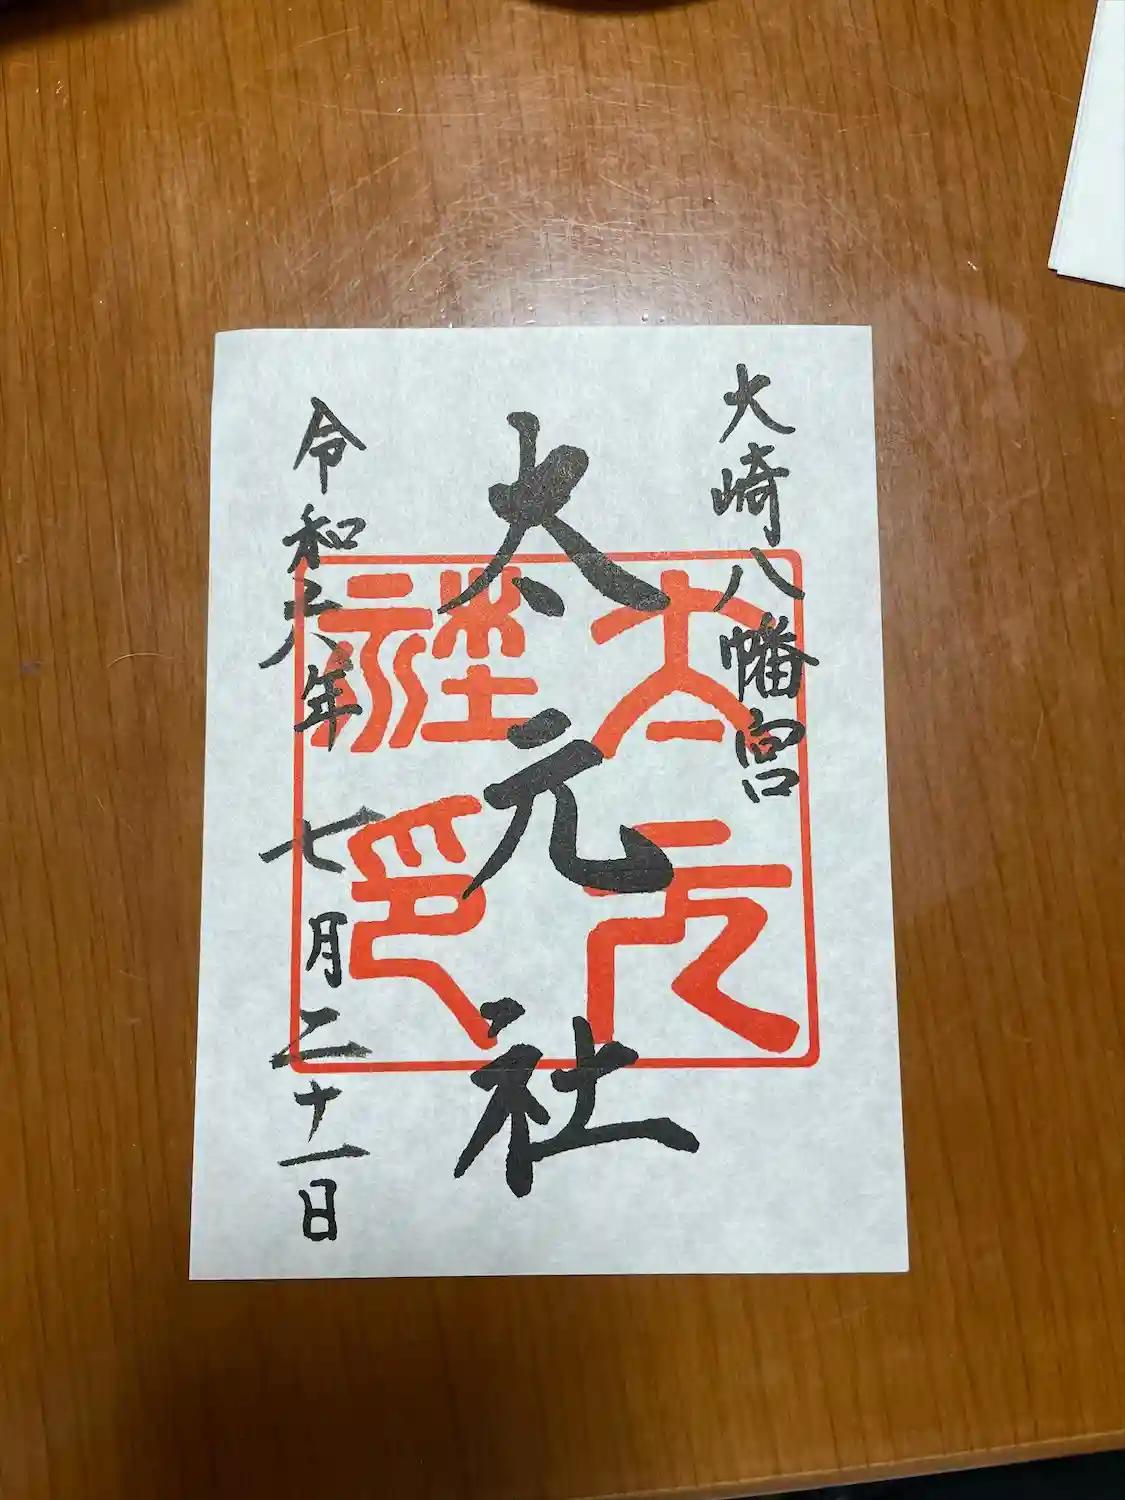 大崎八幡宮
太元社
太元社印
令和六年七月二十一日